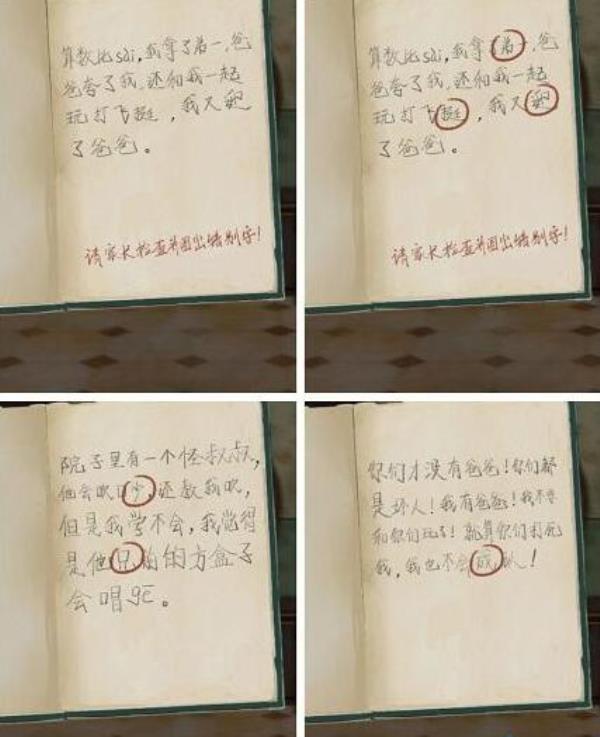 算数比sai，我拿了弟一，爸
爸夸了我，还和我一起
玩打飞挺，我又
了爸爸。
请家长检查并圈出错别字！
算数比sai，我拿了弟一，爸
爸夸了我，还和我一起
玩打飞挺，我又
了爸爸。
请家长检查并圈出错别字！
院子里有一个怪叔叔，
他会吹口少，还教我吹，
但是我学不会，我觉得
是他兄前的方盒子
会唱ge。
你们才没有爸爸！你们都
是坏人！我有爸爸！我不要
和你们玩了！就算你们打死
我，我也不会成认！